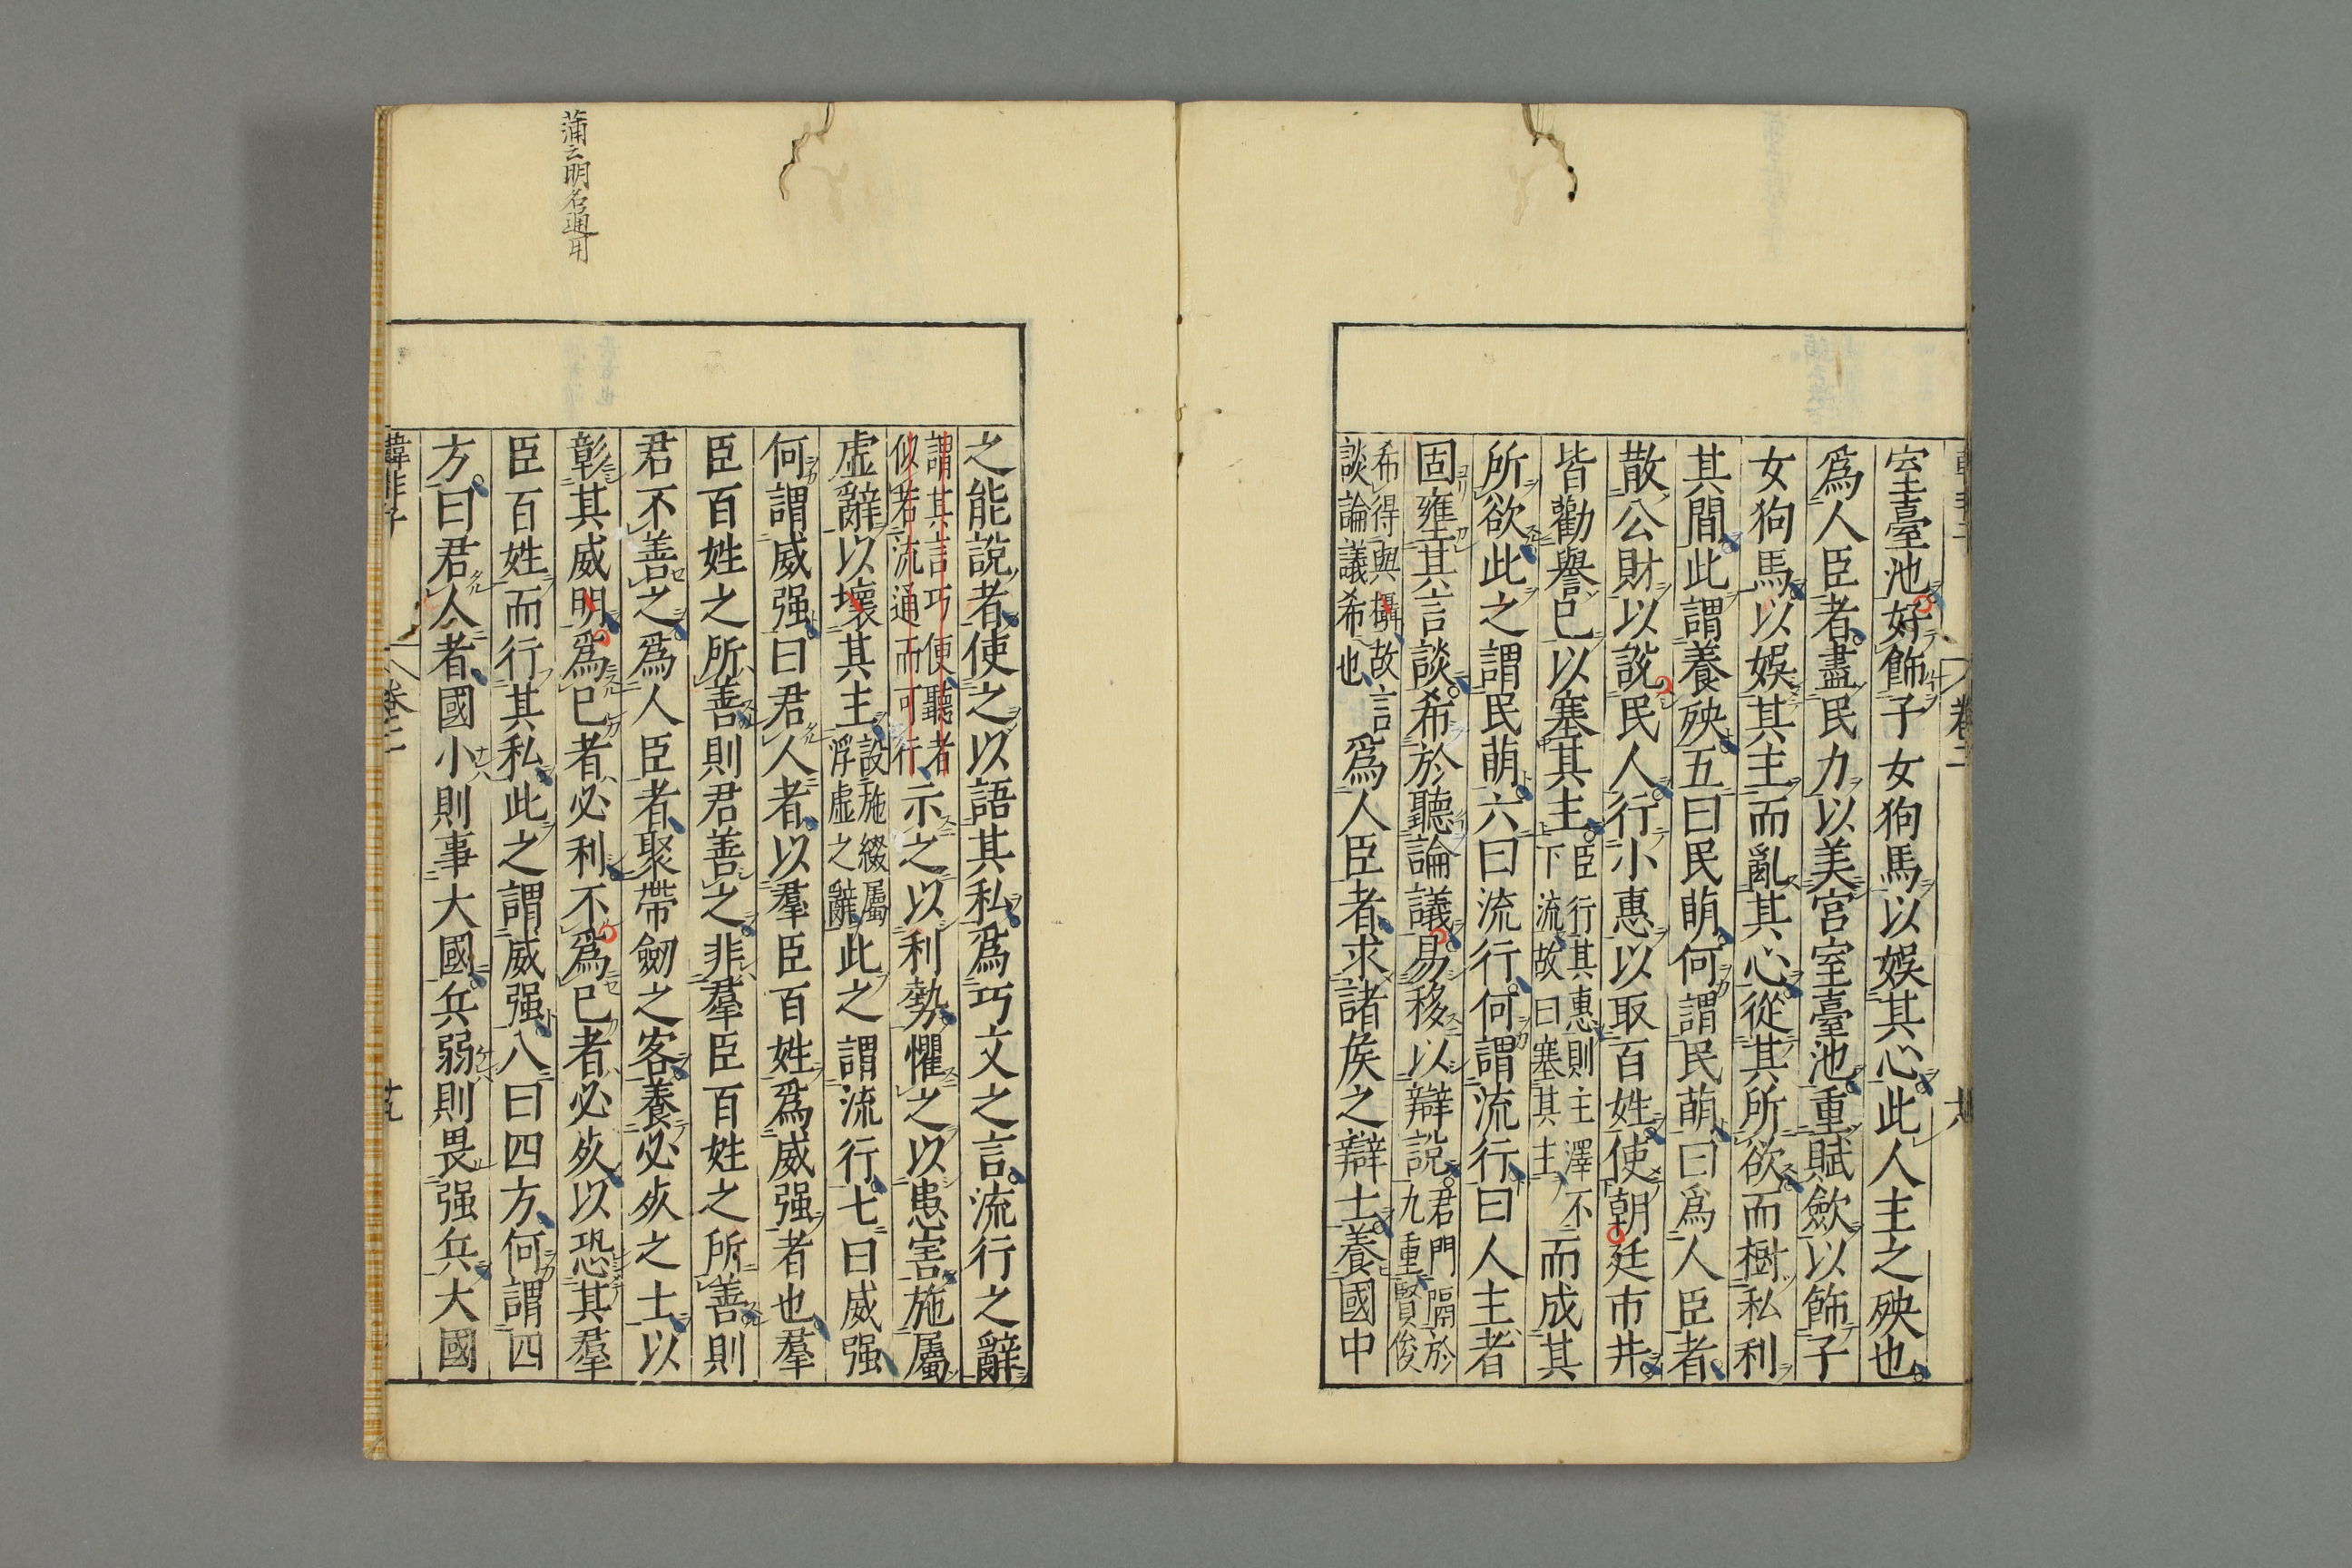 室臺池好飾子女狗馬以娯其心此人主之殃也
爲人臣者盡民力以美宮室臺池重賦歛以飾子
女狗馬以娯其主而亂其心從其所欲而樹私利
其間此謂養殃五曰民萌何謂民萌曰爲人臣者
散公財以說民人行小惠以取百姓使朝廷市井
皆勸譽已以塞其主臣行其惠則主澤不下流故曰塞其主而成其
所欲此之謂民萌六曰流行何謂流行曰人主者
固壅其言談希於聽論議易移以辯說君門隔於九重賢俊
希得與攝故言談論議希也爲人臣者求諸矦之辯士養國中
之能說者使之以語其私爲巧文之言流行之辭
謂其言巧便聽者似若流通而可行示之以利勢懼之以患害施屬
虚辭以壞其主設施綴屬浮虚之辭此之謂流行七曰威强
何謂威强曰君人者以羣臣百姓爲威强者也羣
臣百姓之所善則君善之非羣臣百姓之所善則
君不善之爲人臣者聚帶劒之客養必死之士以
彰其威明爲已者必利不爲已者必死以恐其羣
臣百姓而行其私此之謂威强八曰四方何謂四
方曰君人者國小則事大國兵弱則畏强兵大國
韓非子 卷二
蒲云明名通用